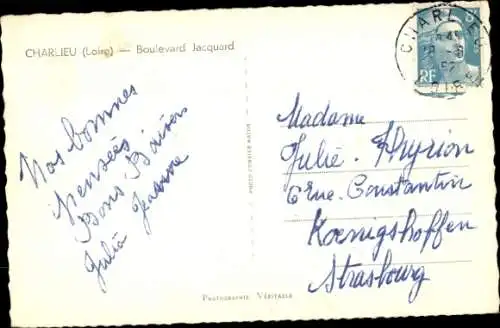 CHARLIEU (Loire) — Boulevard Jacquard
Nos bonnes
pensées
Bons Baisers
Julia Jeanne
PHOTO-COMBIER MACON
PHOTOGRAPHIE VÉRITABLE
CHARLIEU
RF
Madame
Julie
6 rue Constantin
Kœnigshoffen
Strasbourg